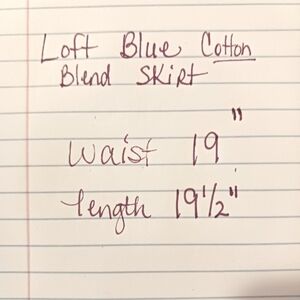 Loft Blue Cotton
Blend Skirt
Waist 19"
length 19 1/2"